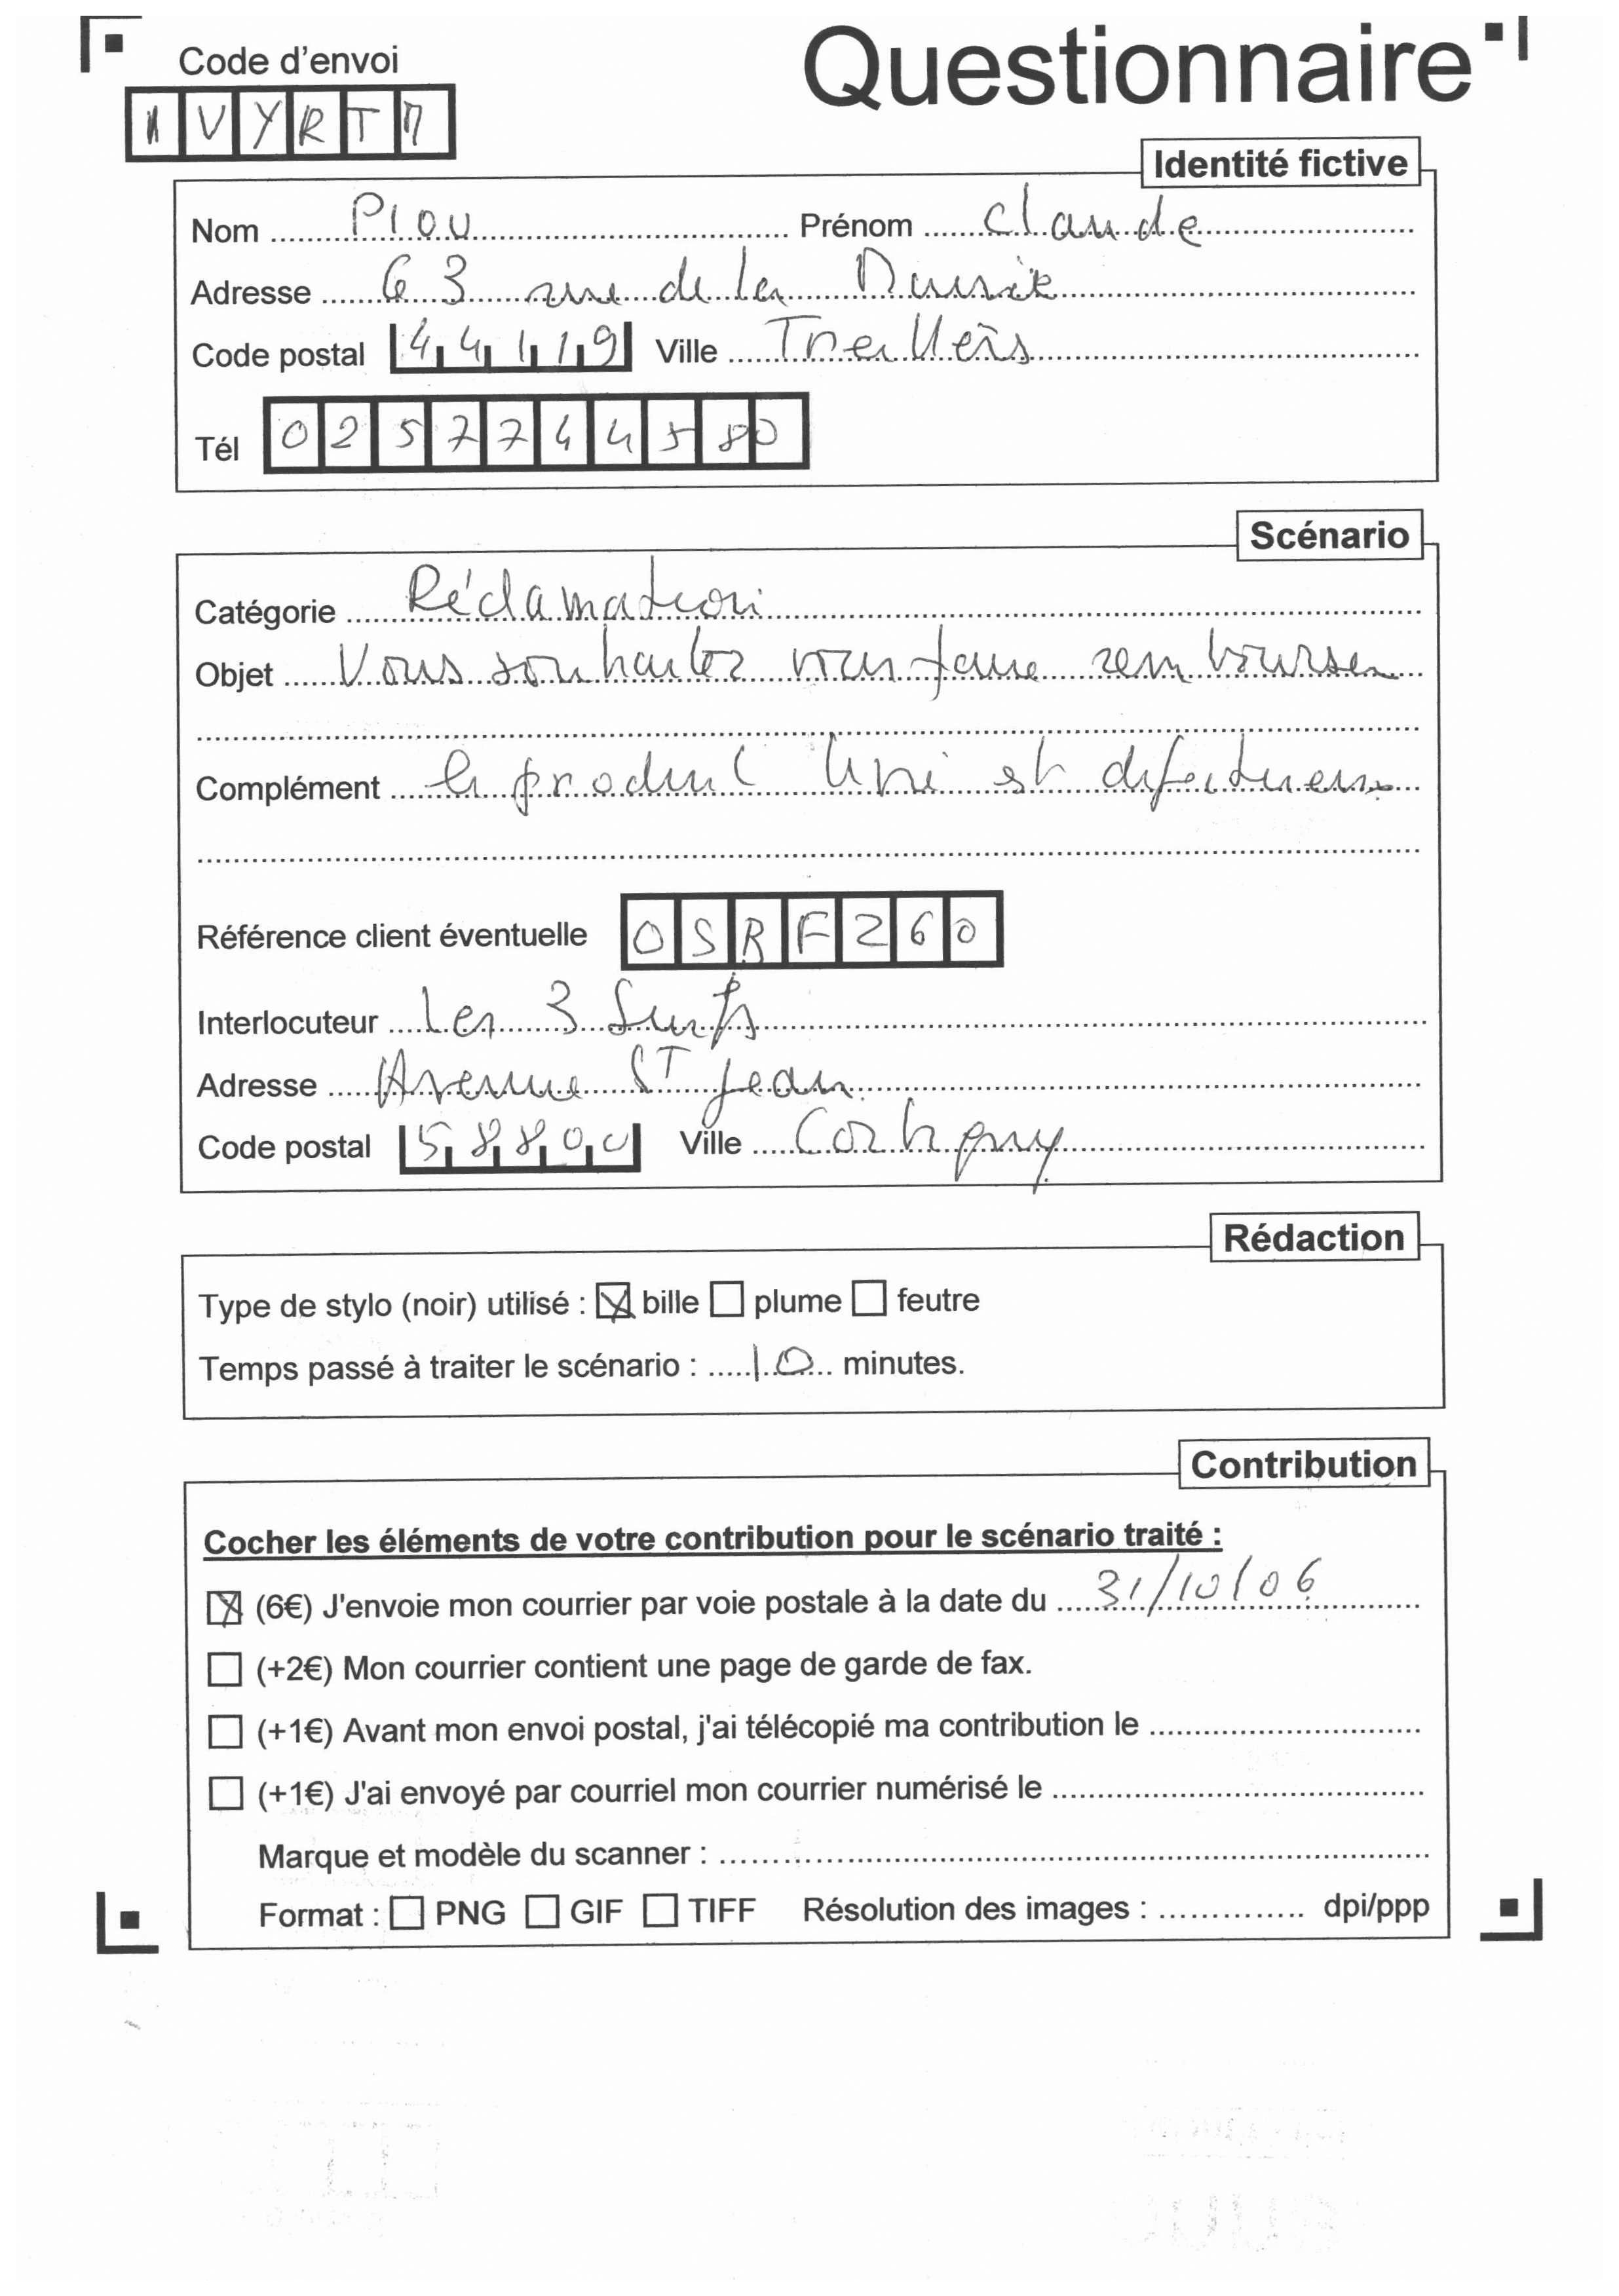 Code d'envoi
Questionnaire
VYRT
Identité fictive
Nom Piou Prénom Claude
Adresse 63 rue de la
Code postal 44119 Ville Treillers
Tél 0257744580
Scénario
Catégorie Réclamation
Objet Vous souhaitez vous faire rembourser
Complément le produit livré est défectueux
Référence client éventuelle OSRF260
Interlocuteur Les 3 Surfs
Adresse Avenue ST Jean
Code postal 58800 Ville
Rédaction
Type de stylo (noir) utilisé : bille plume feutre
Temps passé à traiter le scénario : 10 minutes.
Contribution
Cocher les éléments de votre contribution pour le scénario traité :
(6€) J'envoie mon courrier par voie postale à la date du 31/10/06
(+2€) Mon courrier contient une page de garde de fax.
(+1€) Avant mon envoi postal, j'ai télécopié ma contribution le
(+1€) J'ai envoyé par courriel mon courrier numérisé le
Marque et modèle du scanner :
Format : PNG GIF TIFF Résolution des images : dpi/ppp